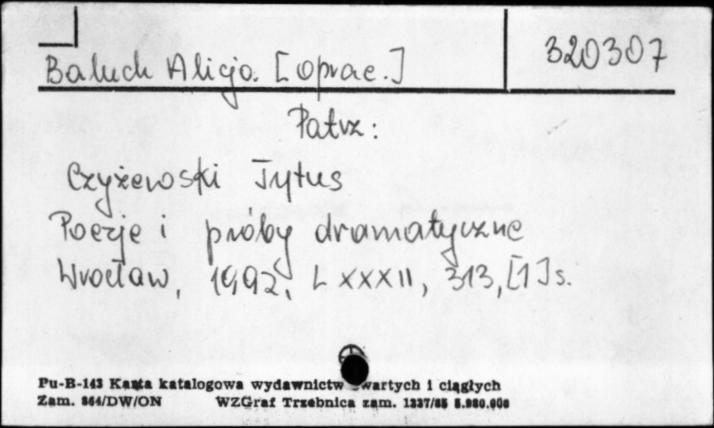 Baluch Alicja. [oprac.] 320307
Patrz:
Czyżewski Tytus
Poezje i próby dramatyczne
Wrocław, 1992, LXXXII, 313, [1] s.
Pu-B-143 Karta katalogowa wydawnictw zwartych i ciągłych
Zam. 864/DW/ON WZGraf Trzebnica zam. 1337/85 5.000.000